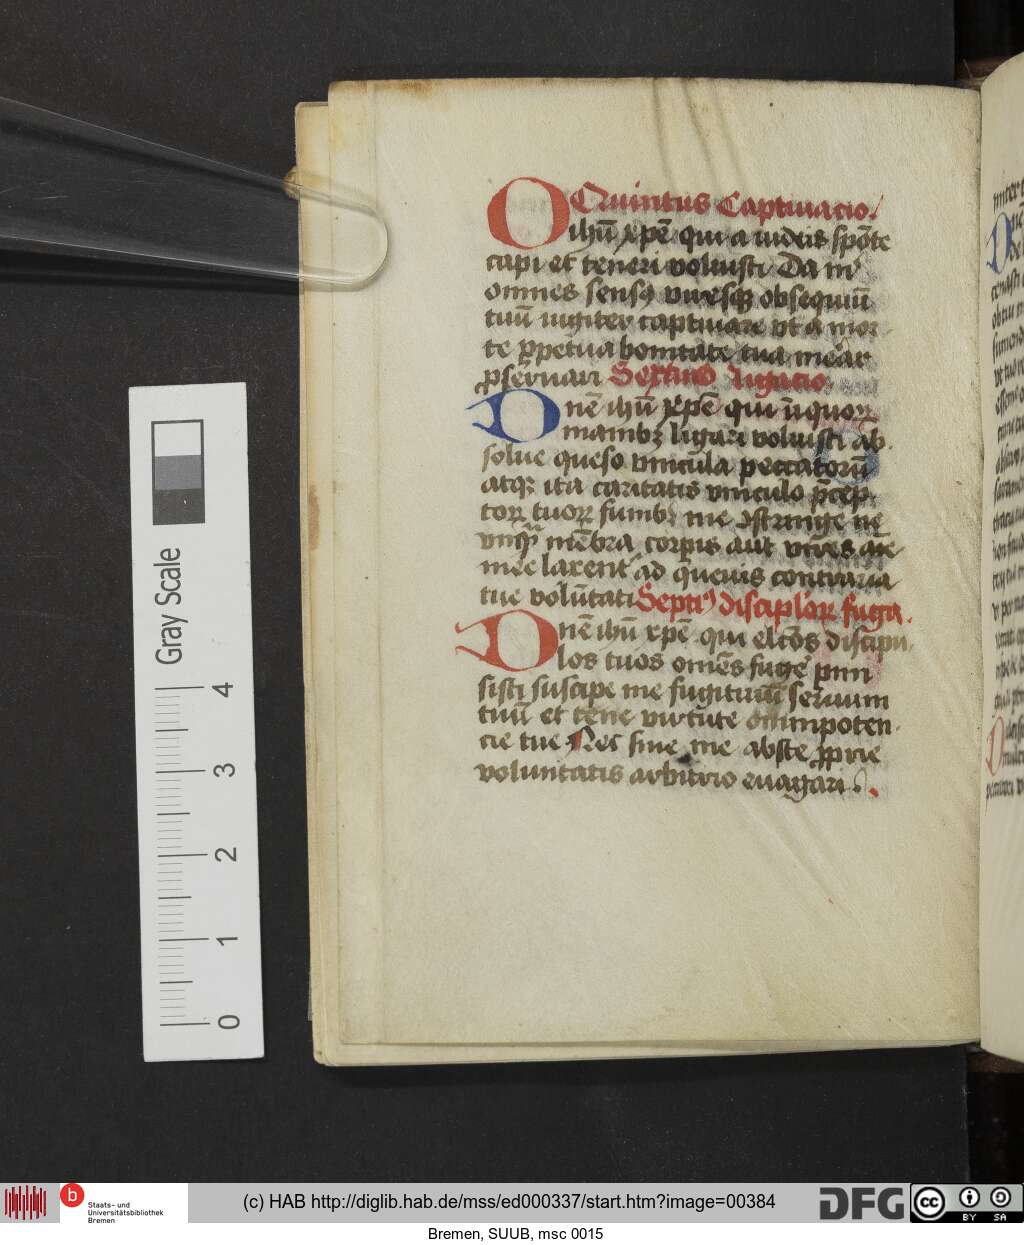 Quintus Captiuacio.
O ihū xpē qui a iudeis spōte
capi et teneri voluisti Da m
omnes sensꝰ viresqꝫ obsequiū
tuū iugiter captiuare vt a mor
te ꝑpetua bonitate tua mear
ꝑseruari Sextus ligacio
Dnē ihū xpē qui iniquoꝝ
manibꝫ ligari voluisti ab
solue queso vincula peccatorū
atqꝫ ita caritatis vinculo p̄cep
toꝝ tuoꝝ funibꝫ me ꝯstringe ne
vnqᷓ mēbra corꝑis aut vires aīe
mee laxent ad queuis contraria
tue volūtati Septīꝰ discipl'oꝝ fuga.
Dnē ihū xpē qui elcōs discipu
los tuos om̄es fugē ꝑmi
sisti suscipe me fugitiuū seruum
tuū et tene virtute omnipoten
cie tue Nec sine me abste ꝓprie
voluntatis arbitrio euagari
Gray Scale
4
3
2
1
0
b
Staats- und
Universitätsbibliothek
Bremen
(c) HAB http://diglib.hab.de/mss/ed000337/start.htm?image=00384
DFG
cc
BY SA
Bremen, SUUB, msc 0015